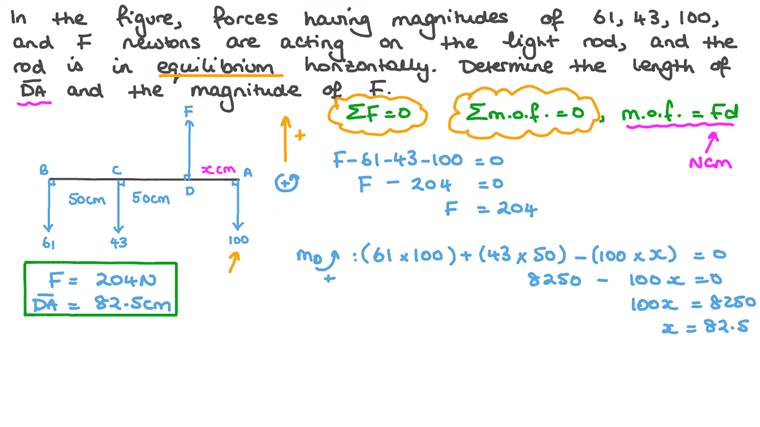 In the figure, forces having magnitudes of 61, 43, 100,
and F newtons are acting on the light rod, and the
rod is in equilibrium horizontally. Determine the length of
DA and the magnitude of F.
ΣF = 0
Σm.o.f. = 0, m.o.f. = Fd
Ncm
F
+
x cm
B C D A
50cm 50cm
61 43 100
+
F - 61 - 43 - 100 = 0
F - 204 = 0
F = 204
F = 204N
DA = 82.5cm
m_D + : (61 × 100) + (43 × 50) - (100 × x) = 0
8250 - 100x = 0
100x = 8250
x = 82.5